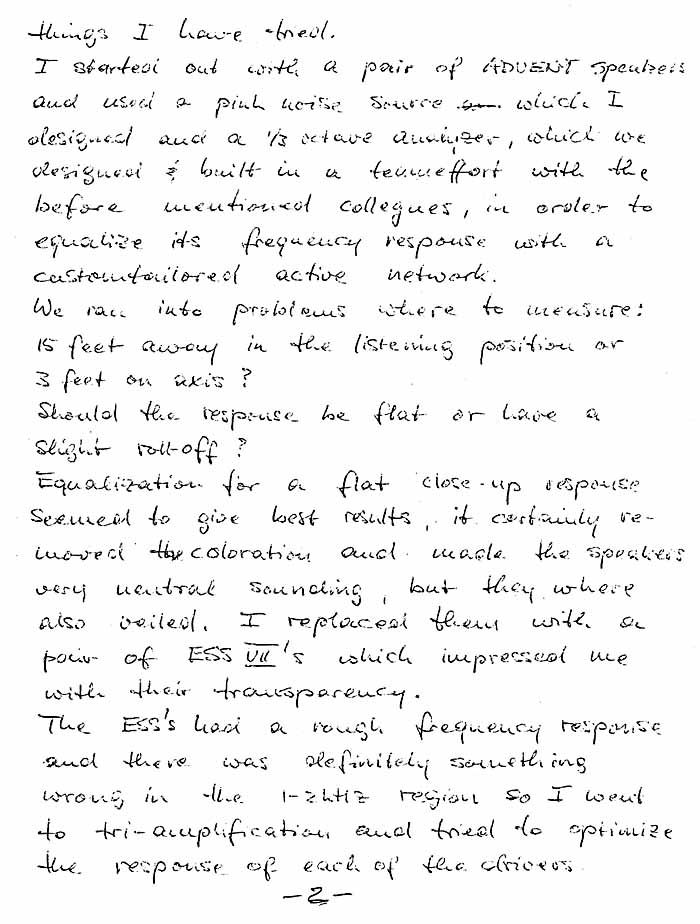 things I have tried.
I started out with a pair of ADVENT speakers
and used a pink noise source which I
designed and a 1/3 octave analyzer, which we
designed & built in a teameffort with the
before mentioned collegues, in order to
equalize its frequency response with a
customtailored active network.
We ran into problems where to measure:
15 feet away in the listening position or
3 feet on axis?
Should the response be flat or have a
slight roll-off?
Equalization for a flat close-up response
seemed to give best results, it certainly re-
moved the coloration and made the speakers
very neutral sounding, but they where
also veiled. I replaced them with a
pair of ESS VII's which impressed me
with their transparency.
The ESS's had a rough frequency response
and there was definitely something
wrong in the 1-2kHz region so I went
to tri-amplification and tried to optimize
the response of each of the drivers.
-2-